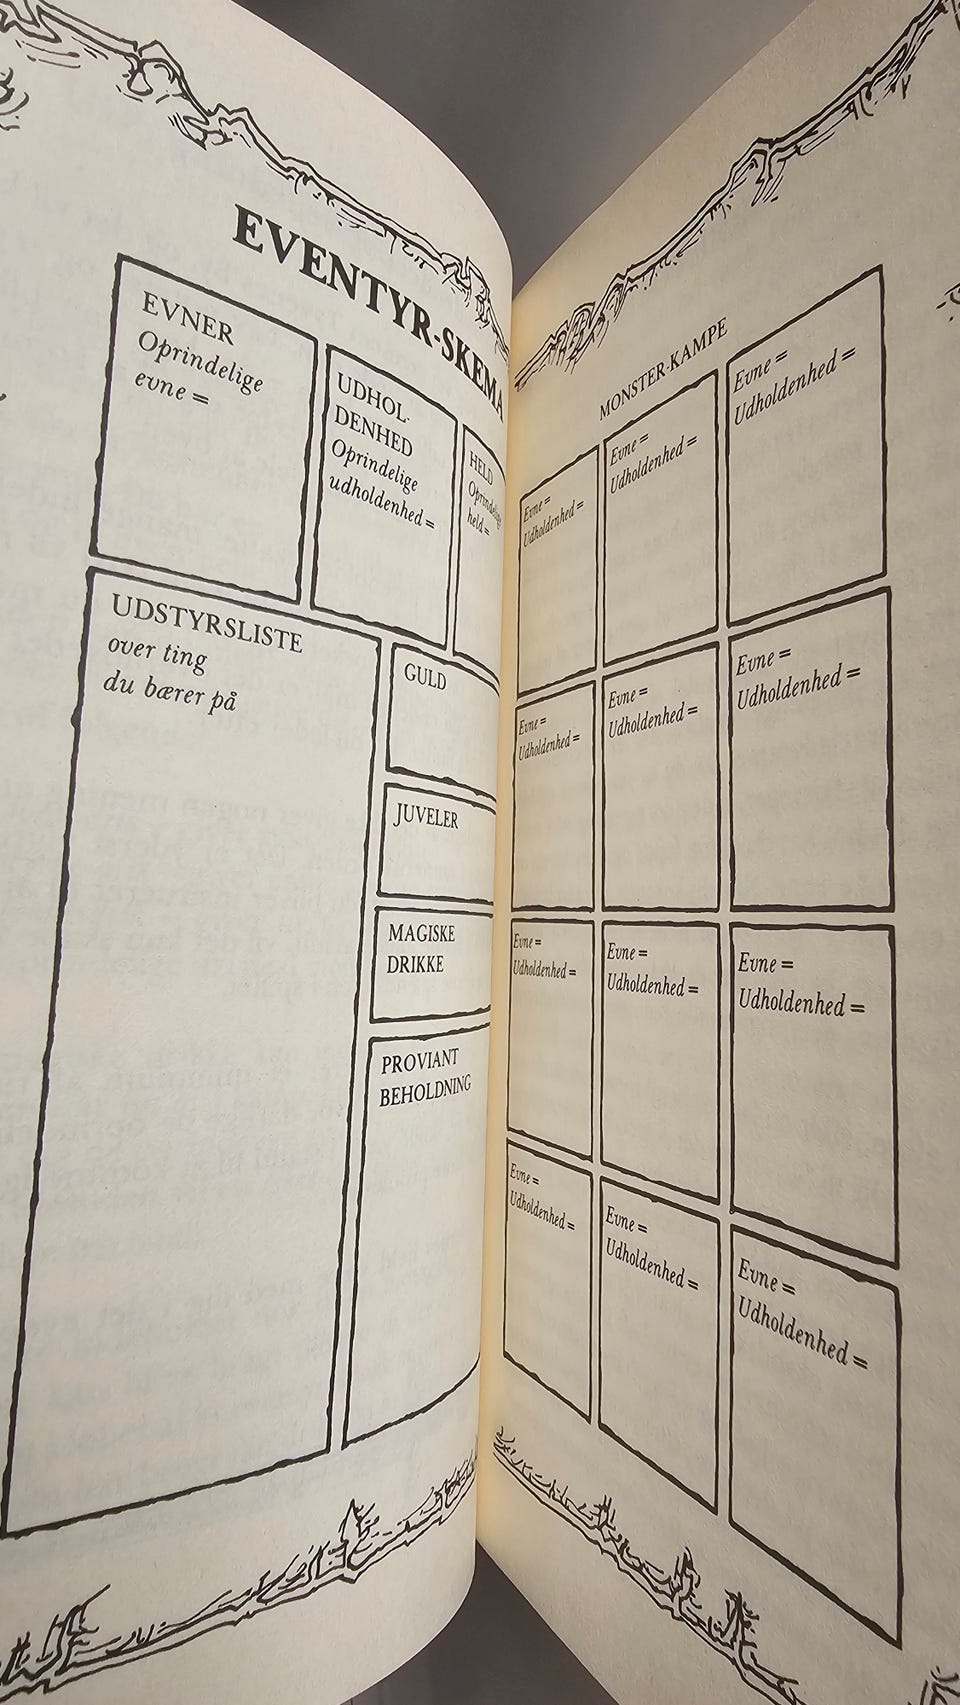 EVENTYR-SKEMA
EVNER
Oprindelige
evne =
UDHOL-
DENHED
Oprindelige
udholdenhed =
HELD
Oprindelige
held =
UDSTYRSLISTE
over ting
du bærer på
GULD
JUVELER
MAGISKE
DRIKKE
PROVIANT
BEHOLDNING
MONSTER-KAMPE
Evne =
Udholdenhed =
Evne =
Udholdenhed =
Evne =
Udholdenhed =
Evne =
Udholdenhed =
Evne =
Udholdenhed =
Evne =
Udholdenhed =
Evne =
Udholdenhed =
Evne =
Udholdenhed =
Evne =
Udholdenhed =
Evne =
Udholdenhed =
Evne =
Udholdenhed =
Evne =
Udholdenhed =